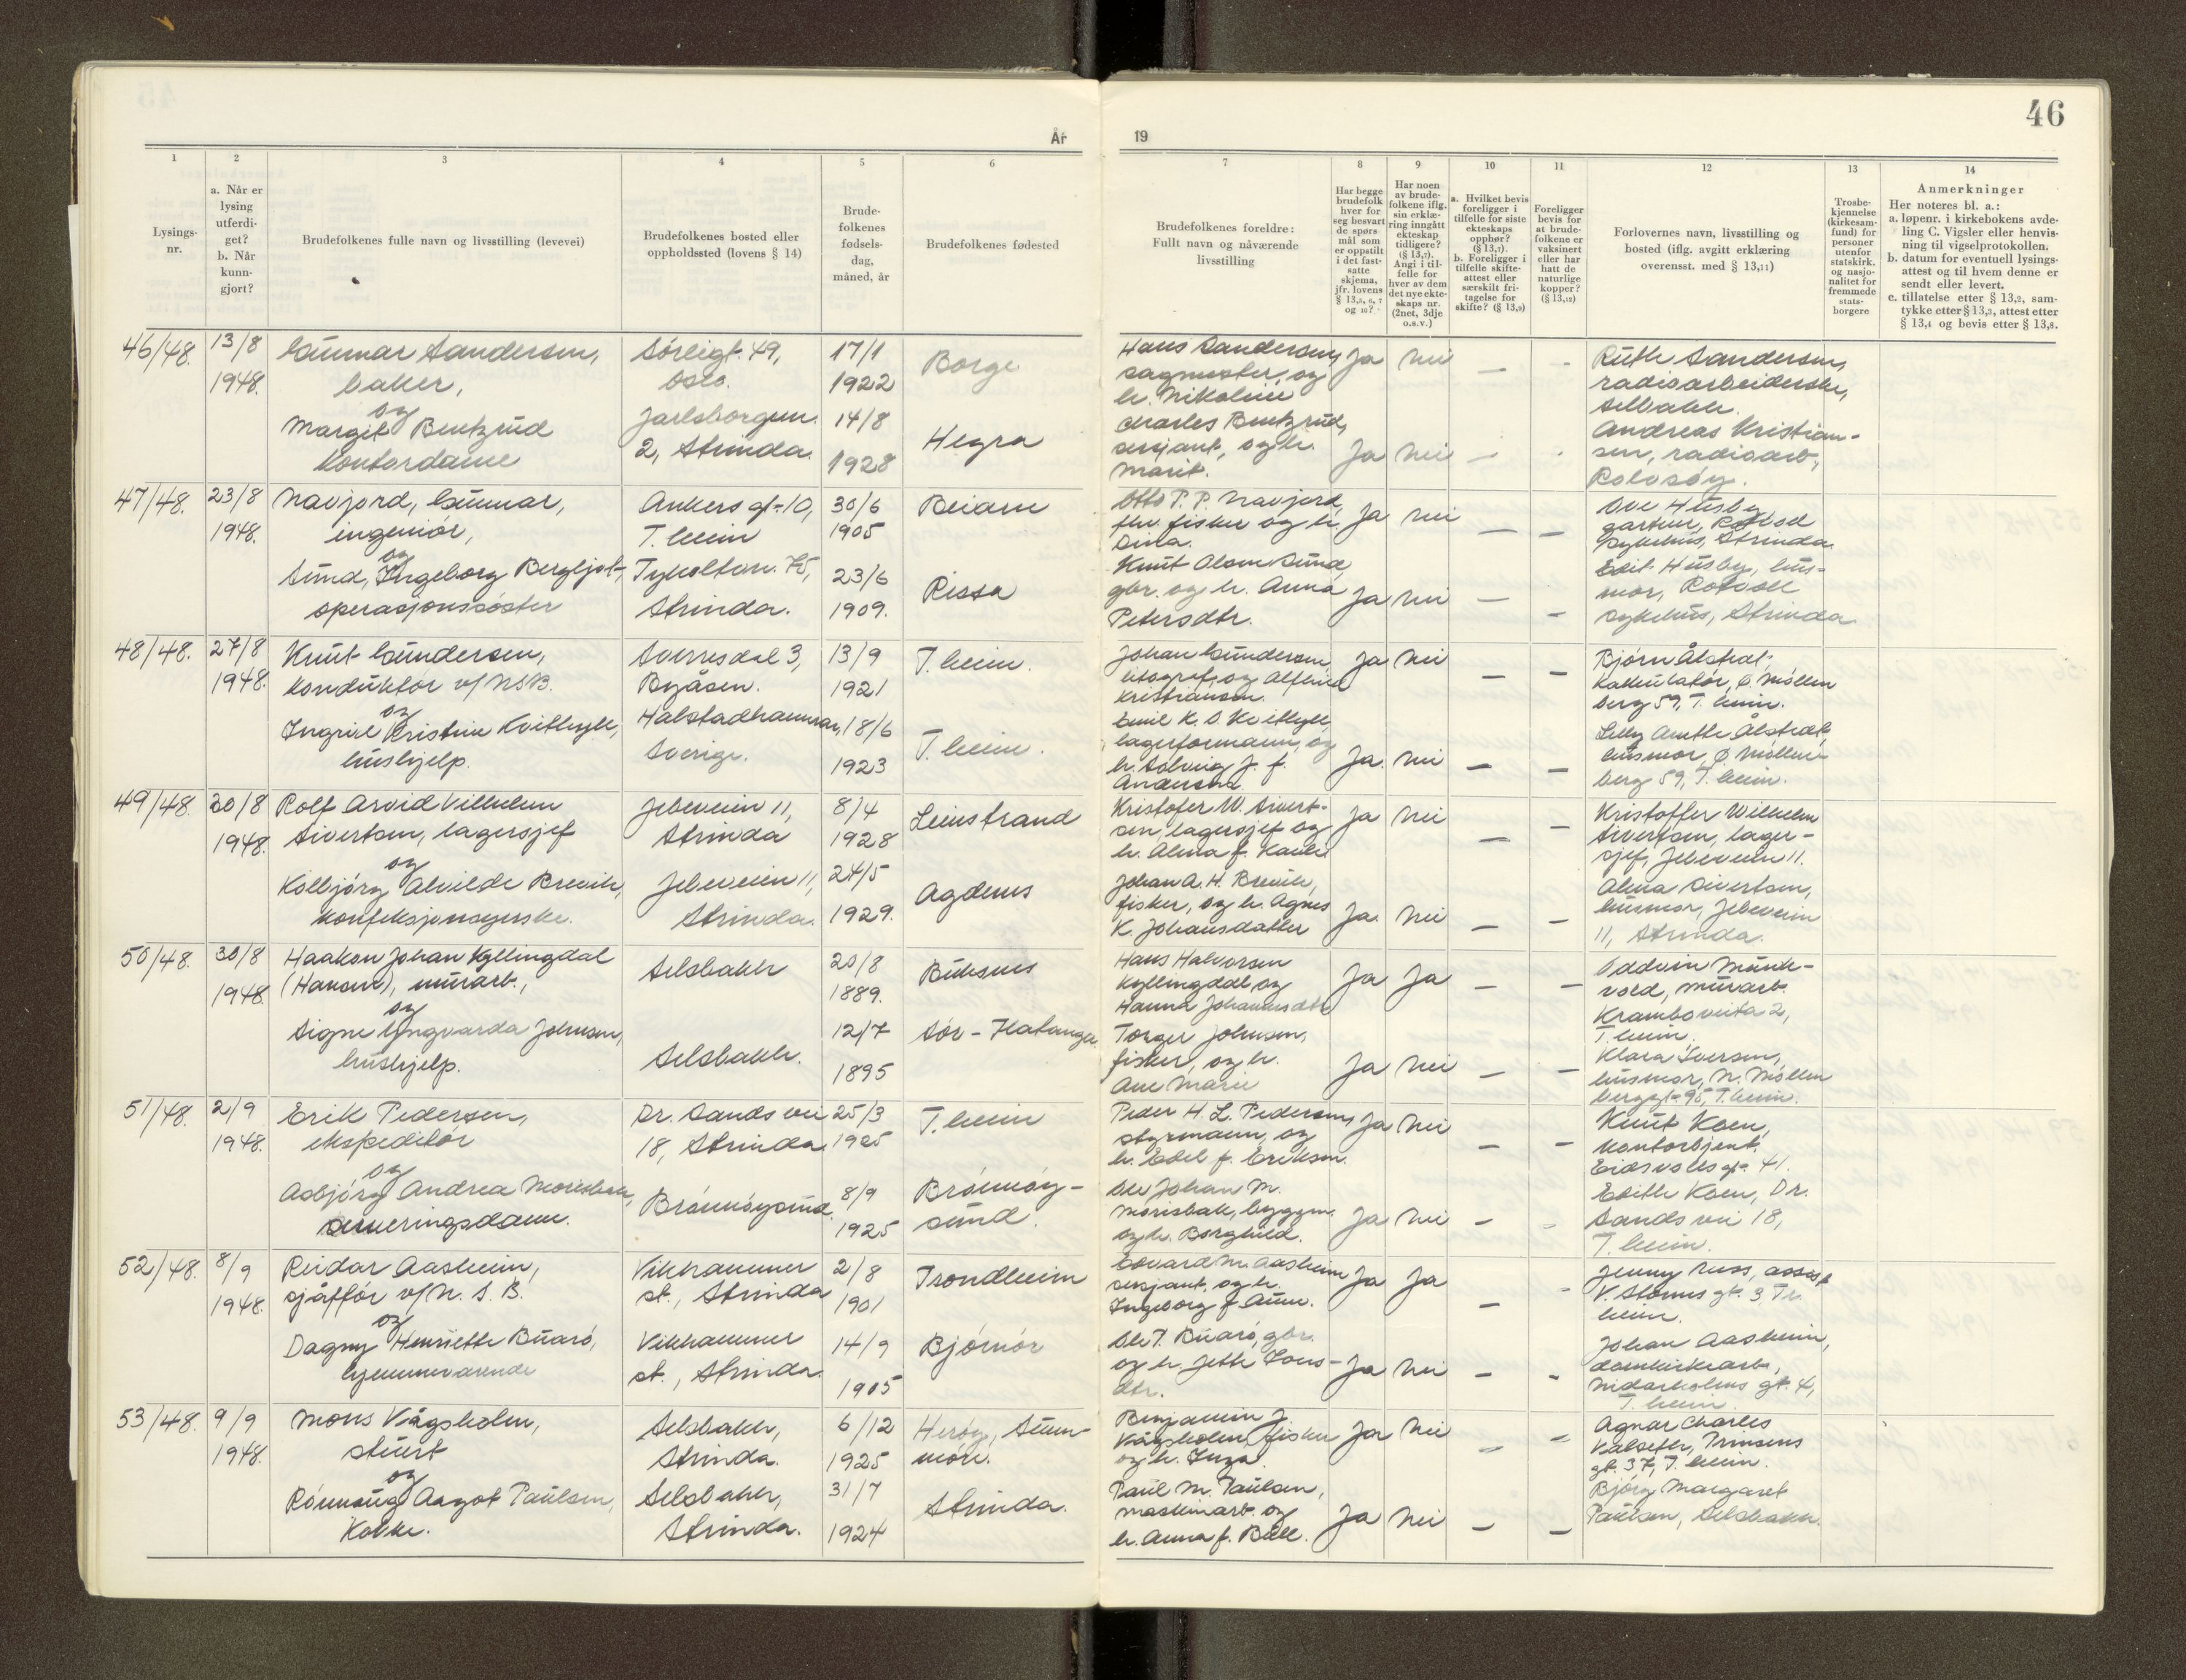 46
År
19
1 2 3 4 5 6 7 8 9 10 11 12 13 14
Lysings-
nr.
a. Når er
lysing
utferdi-
get?
b. Når
kunn-
gjort?
Brudefolkenes fulle navn og livsstilling (levevei)
Brudefolkenes bosted eller
oppholdssted (lovens § 14)
Brude-
folkenes
fødsels-
dag,
måned, år
Brudefolkenes fødested
Brudefolkenes foreldre:
Fullt navn og nåværende
livsstilling
Har begge
brudefolk
hver for
seg besvart
de spørs
mål som
er oppstilt
i det fast-
satte
skjema,
jfr. lovens
§ 13,5, 6, 7
og 10?
Har noen
av brude-
folkene iflg.
sin erklæ-
ring inngått
ekteskap
tidligere?
(§ 13,7).
Angi i til-
felle for
hver av dem
det nye ekte-
skaps nr.
(2net, 3dje
o.s.v.)
a. Hvilket bevis
foreligger i
tilfelle for siste
ekteskaps
opphør?
(§ 13,7).
b. Foreligger i
tilfelle skifte-
attest eller
særskilt fri-
tagelse for
skifte? (§ 13,9)
Foreligger
bevis for
at brude-
folkene er
vaksinert
eller har
hatt de
naturlige
kopper?
(§ 13,12)
Forlovernes navn, livsstilling og
bosted (iflg. avgitt erklæring
overensst. med § 13,11)
Trosbe-
kjennelse
(kirkesam-
fund) for
personer
utenfor
statskirk.
og nasjo-
nalitet for
fremmede
stats-
borgere
Anmerkninger
Her noteres bl. a.:
a. løpenr. i kirkebokens avde-
ling C. Vigsler eller henvis-
ning til vigselprotokollen.
b. datum for eventuell lysings-
attest og til hvem denne er
sendt eller levert.
c. tillatelse etter § 13,2, sam-
tykke etter § 13,3, attest etter
§ 13,4 og bevis etter § 13,8.
46/48.
13/8
1948.
Gunnar Sandersen,
baker,
og
Margit Bentzrud
kontordame
Sörligt. 49,
Oslo.
Jarlsborgvn.
2, Strinda.
17/1
1922
14/8
1928
Borge
Hegra
Hans Sandersen,
sagmester, og
h. Nikoline
Charles Bentzrud,
sersjant, og h.
Marit.
Ja Nei — -
Ja Nei — -
Ruth Sandersen,
radioarbeiderske,
Selbakk.
Andreas Kristian-
sen, radioarb.,
Rolvsöy.
47/48.
23/8
1948.
Navjord, Gunnar,
ingeniör,
og
Sund, Ingeborg Bergljot,
operasjonssöster
Ankers gt. 10,
T.heim
Tyholtvn. 75,
Strinda.
30/6
1905
23/6
1909.
Beiarn
Rissa
Otto P. P. Navjord,
fhv. fisker og h.
Dina.
Knut Olsen Sund,
gbr. og h. Anna
Petersdtr.
Ja Nei — —
Ja Nei — —
Ove Husby,
gartner, Rotvoll
sykehus, Strinda.
Edit Husby, hus-
mor, Rotvoll
sykehus, Strinda
48/48.
27/8
1948.
Knut Gundersen,
konduktör v/ NSB.
og
Ingrid Kristine Kvithyll,
hushjelp.
Sverresdal 3,
Byåsen.
Halstadhammar,
Sverige.
13/9
1921
18/6
1923
T.heim.
T.heim.
Johan Gundersen,
litograf, og Alfhild
Kristiansen.
Emil K. O. Kvithyll,
lagerformann, og
h. Solveig J. f.
Andersen.
Ja Nei — —
Ja Nei — —
Björn Ålstedt,
kalkulatör, Ø. Möllen
berg 59, T.heim.
Lilly Ålstedt,
husmor, Ø. Möllen
berg 59, T.heim.
49/48.
30/8
1948.
Rolf Arvid Vilhelm
Sivertsen, lagersjef
og
Kolbjörg Alvilde Brevik,
konfeksjonssyerske.
Jebeveien 11,
Strinda
Jebeveien 11,
Strinda.
8/4
1928
24/5
1929.
Leinstrand
Agdenes
Kristofer W. Sivert-
sen, lagersjef og
h. Alma f.
Johan A. H. Brevik,
fisker, og h. Agnes
K. Johansdatter
Ja Nei — —
Ja. Nei — —
Kristoffer Wilhelm
Sivertsen, lager-
sjef, Jebeveien 11.
Alma Sivertsen,
husmor, Jebeveien
11, Strinda.
50/48.
30/8
1948
Haakon Johan Kyllingdal
(Hansen), murarb.,
og
Signe Yngvarda Johnsen,
hushjelp.
Selsbakk
Selsbakk.
20/8
1889.
12/7
1895
Buksnes
Sör-Hatanger
Hans Halvorsen
Kyllingdal og
Hanna Johannesdtr.
Torger Johnsen,
fisker, og h.
Ane Marie
Ja Ja — —
Ja Nei — —
Oddvin Munk-
vold, murarb.
Kramboveita 2,
T.heim.
Klara Iversen,
husmor, N. Möllen
berggt. 95, T.heim.
51/48.
2/9
1948.
Erik Pedersen,
ekspeditör
og
Asbjörg Andrea Morisbak,
serveringsdame.
Dr. Sands vei
18, Strinda
Brönnöysund.
25/3
1925
8/9
1925
T.heim
Brönnöy-
sund.
Peder H. L. Pedersen,
styrmann, og
h. Edel f. Eriksen.
Ole Johan M.
Morisbak, byggm.
og h. Borghild.
Ja Nei — —
Ja Nei — -
Knut Koen,
kontorbjent.
Eidsvolls gt. 41.
Edith Koen, Dr.
Sands vei 18,
T.heim.
52/48.
8/9
1948.
Reidar Aasheim,
sjåfför v/ N. S. B.
og
Dagny Henriette Buarö,
hjemmeværende
Vikhammer
st., Strinda
Vikhammer
st., Strinda.
2/8
1901
14/9
1905
Trondheim
Bjørnör
Edvard M. Aasheim
sersjant, og h.
Ingeborg f. Aune.
Ole T. Buarö, gbr.
og h. Jette Tons-
dtr.
Ja Ja — -
Ja Nei — -
Jenny Russ, assist.
V. Storms gt. 3 Tr.
heim.
Johan Aasheim,
domkirkearb.,
Nidarholms gt. 4,
T.heim.
53/48.
9/9
1948.
Mons Vågsholm,
stuert
og
Rönnaug Aagot Paulsen,
Kokke.
Selsbakk,
Strinda.
Selsbakk,
Strinda.
6/12
1925
31/7
1924
Heröy, Sunn-
möre.
Strinda.
Benjamin J.
Vågsholm, fisker
og h. Inga.
Paul M. Paulsen,
maskinarb. og
h. Anna f. Bakk.
Ja Nei — —
Ja Nei — —
Agnar Charles
Valseth, Prinsens
gt. 37, T.heim.
Bjórg Margaret
Paulsen, Selsbakk.